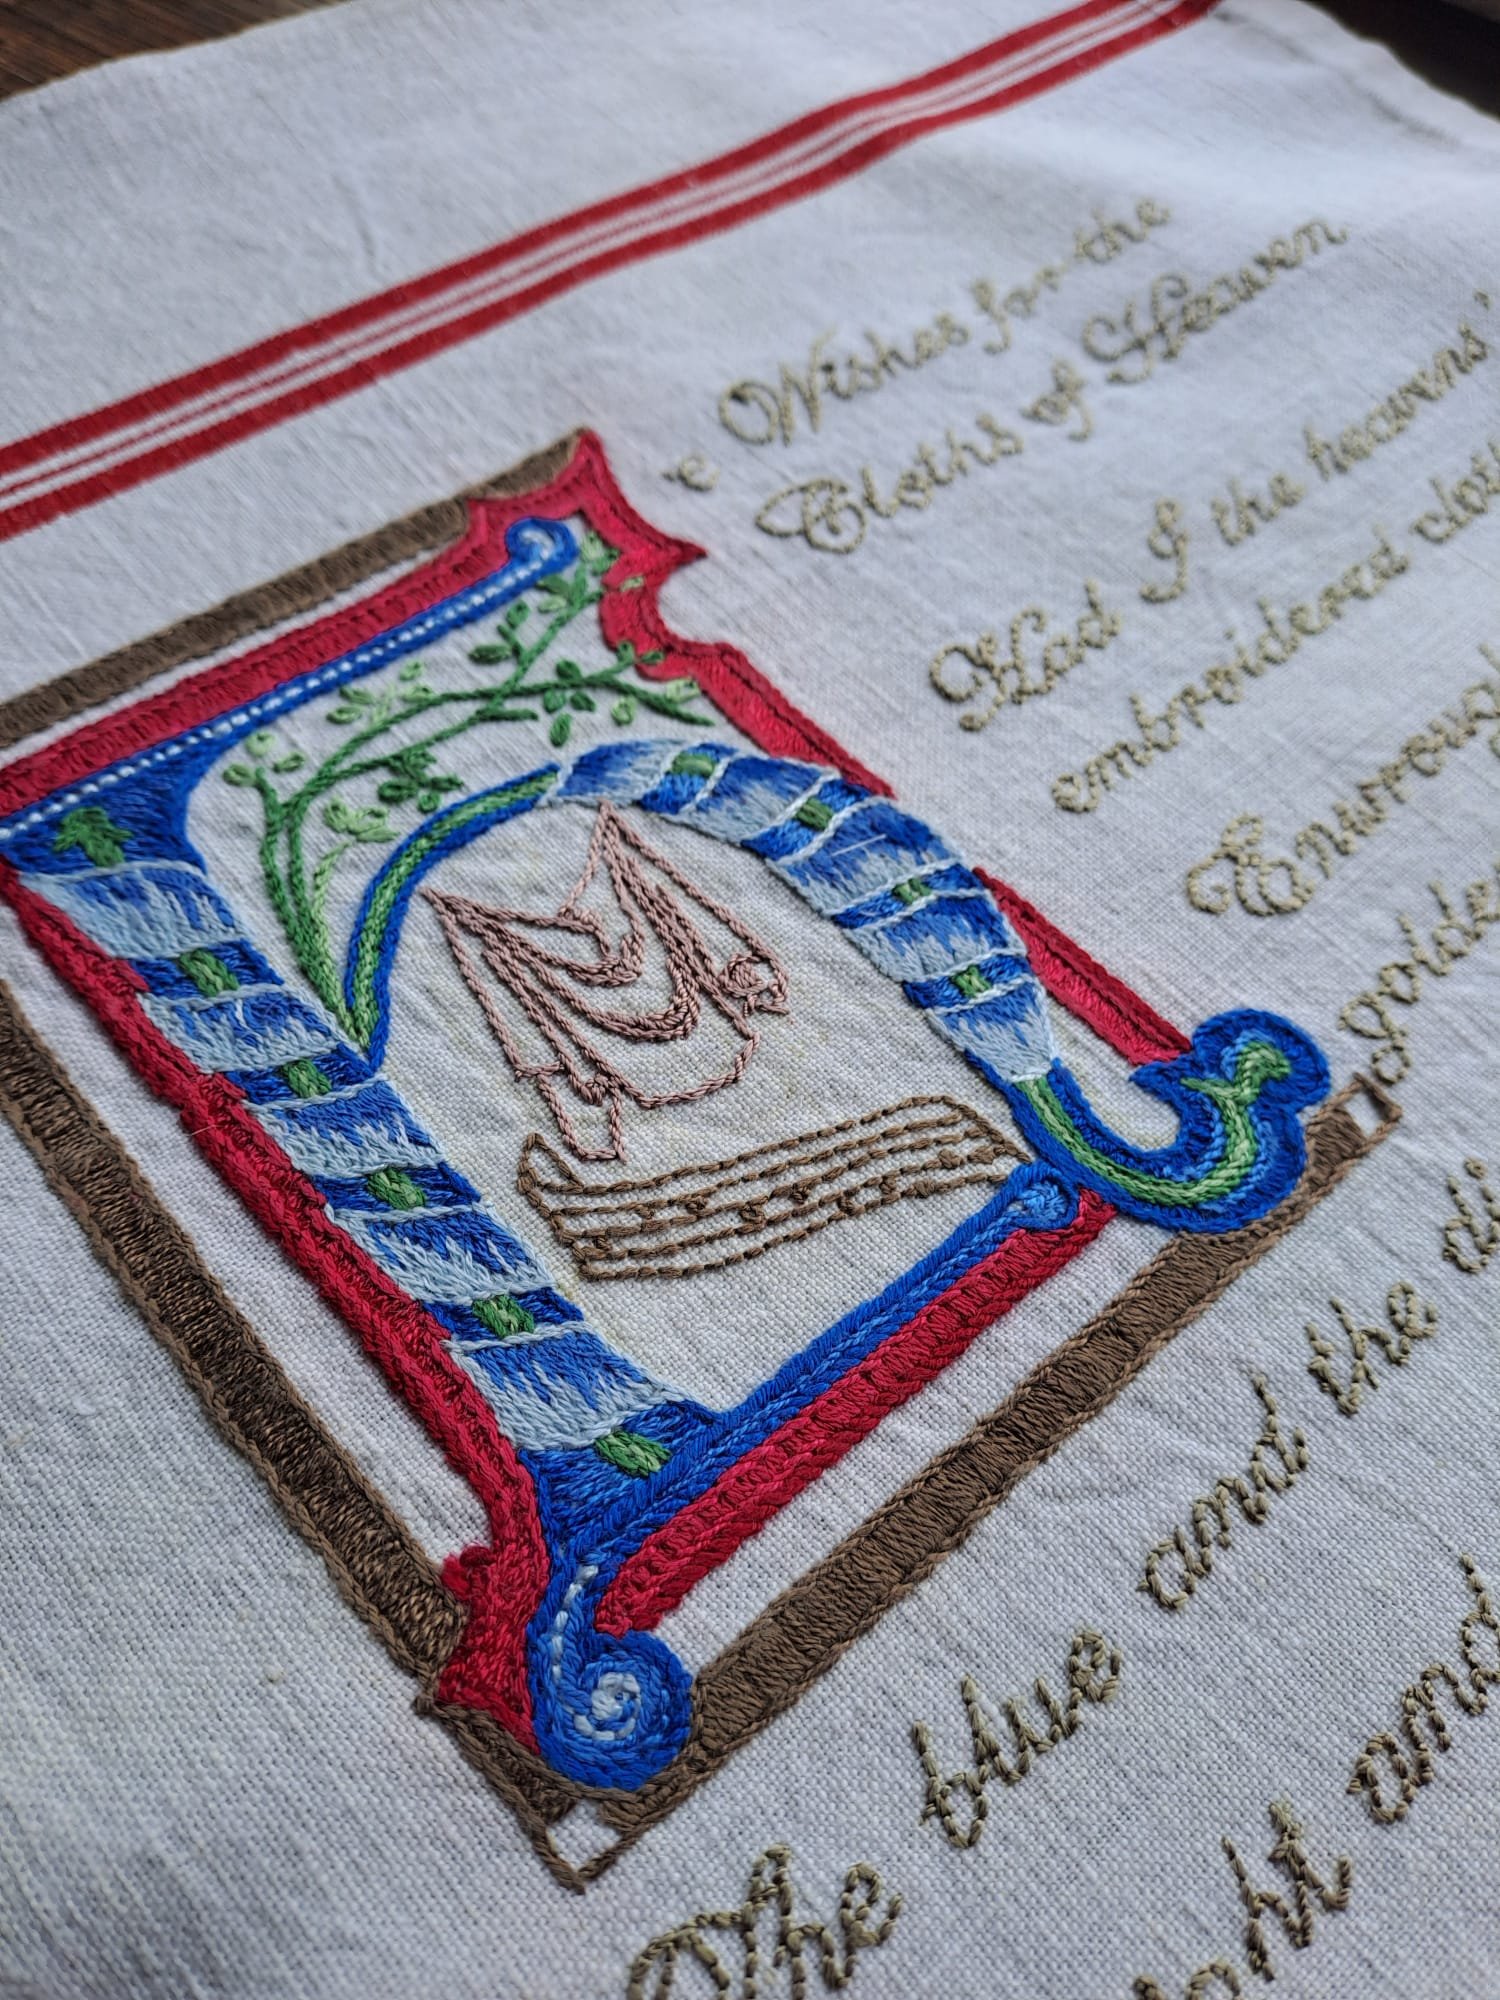 He Wishes for the
Cloths of Heaven
Had I the heavens'
embroidered clot
Enwrough
golde
The blue and the di
ght and